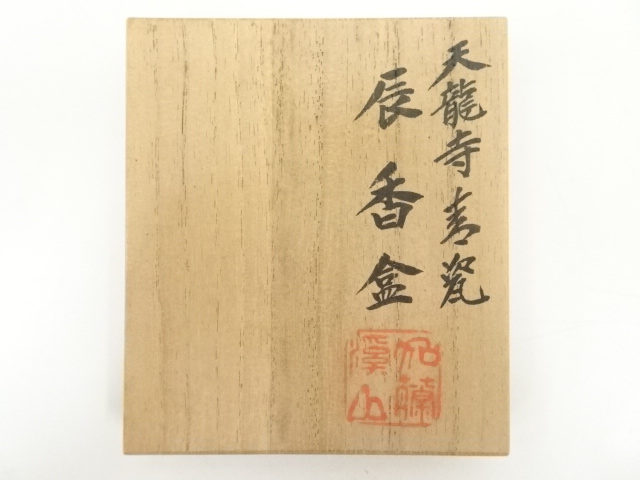 天龍寺青瓷
辰香盒
加藤
溪山